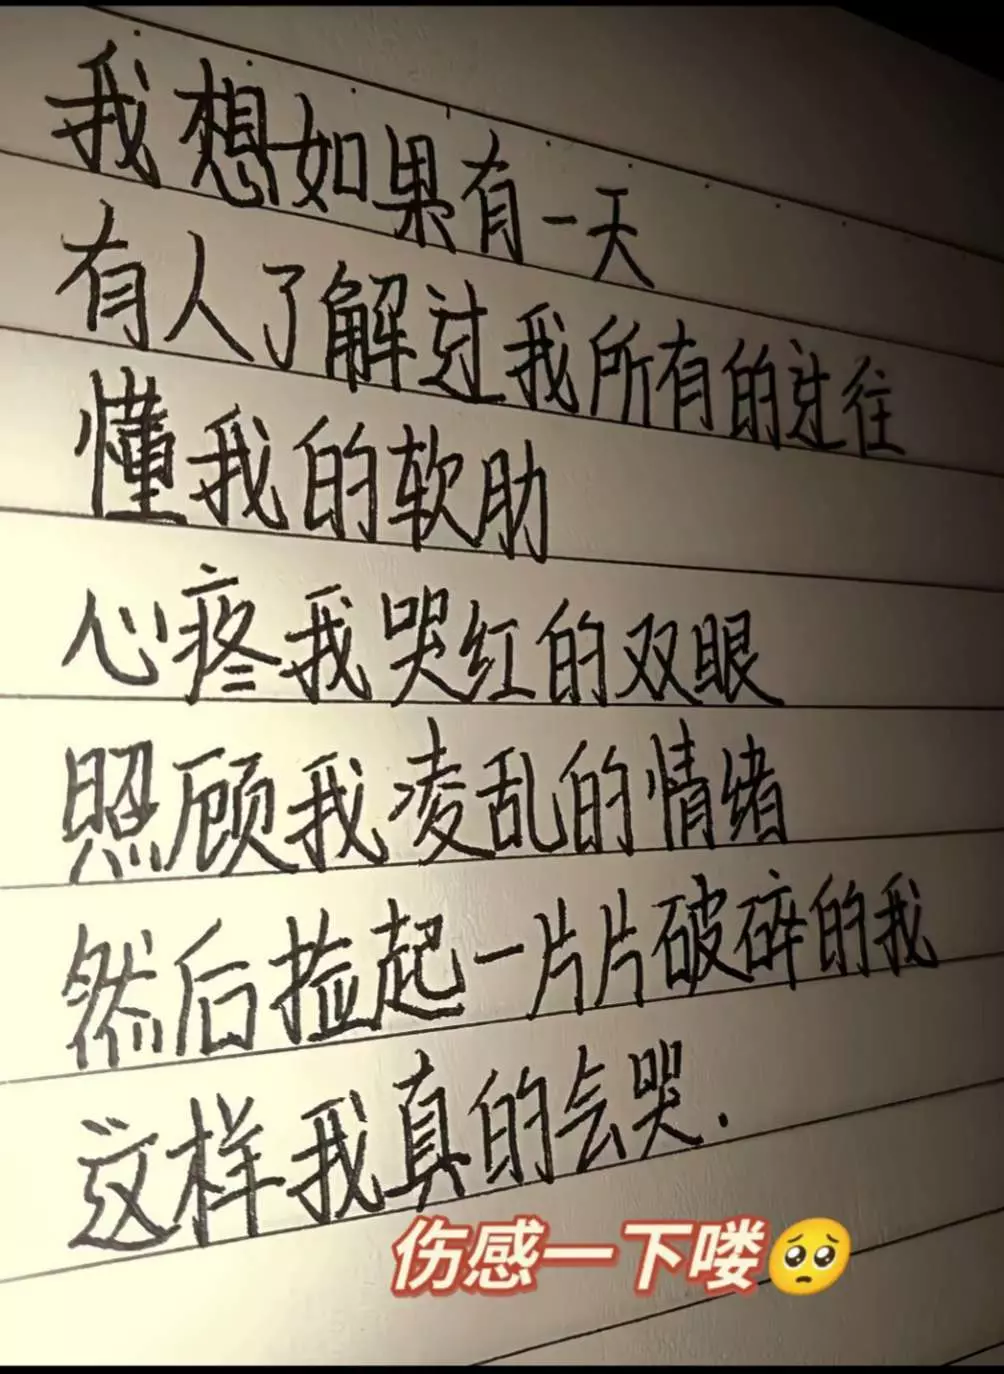 我想如果有一天
有人了解过我所有的过往
懂我的软肋
心疼我哭红的双眼
照顾我凌乱的情绪
然后捡起一片片破碎的我
这样我真的会哭.
伤感一下喽🥺